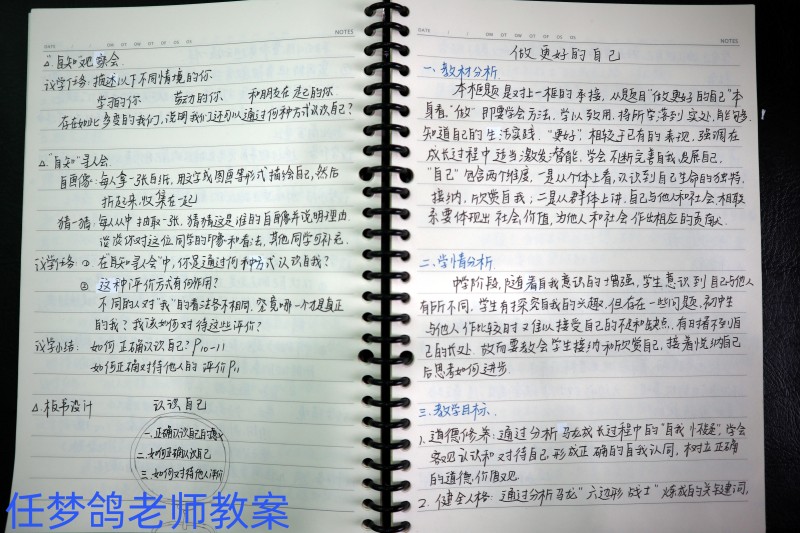 DATE
NOTES
△ "自知"观察会
议学任务: 描述以下不同情境的你
学习的你 劳动的你 和朋友在一起的你
存在如此多变的我们,说明我们还可以通过何种方式认识自己?
△ "自知"寻人会
自画像: 每人拿一张白纸,用文字或图画等形式描绘自己,然后
折起来,收集在一起
猜一猜: 每人从中抽取一张,猜猜这是谁的自画像并说明理由
谈谈你对这位同学的印象和看法,其他同学可补充.
议学任务: ① 在"自知寻人会"中,你是通过何种方式认识自我?
② 这种评价方式有何作用?
不同的人对"我"的看法各不相同,究竟哪一个才是真正
的我? 我该如何对待这些评价?
议学小结: 如何正确认识自己? P10-11
如何正确对待他人的评价P11
△ 板书设计 认识自己
一.正确认识自己的意义
二.如何正确认识自己
三.如何对待他人评价
任梦鸽老师教案
DATE
NOTES
做更好的自己
一、教材分析
本框题是对上一框的承接,从题目"做更好的自己"本
身看,"做"即要学会方法,学以致用,将所学落到实处,能够
知道自己的生活实践."更好",相较于已有的表现,强调在
成长过程中适当激发潜能,学会不断完善自我,发展自己.
"自己"包含两个维度,一是从个体上看,认识到自己生命的独特,
接纳、欣赏自我;二是从群体上讲,自己与他人和社会相联
系要体现出社会价值,为他人和社会作出相应的贡献.
二、学情分析
中学阶段,随着自我意识的增强,学生意识到自己与他人
有所不同,学生有探究自我的兴趣,但存在一些问题,初中生
与他人作比较时又难以接受自己的不足和缺点,有时看不到自
己的长处.故而要教会学生接纳和欣赏自己,接着悦纳自己
后思考如何进步.
三、教学目标
1、道德修养: 通过分析马龙成长过程中的"自我怀疑",学会
客观认识和对待自己,形成正确的自我认同,树立正确
的道德、价值观.
2、健全人格: 通过分析马龙"六边形战士"炼成的关键词,